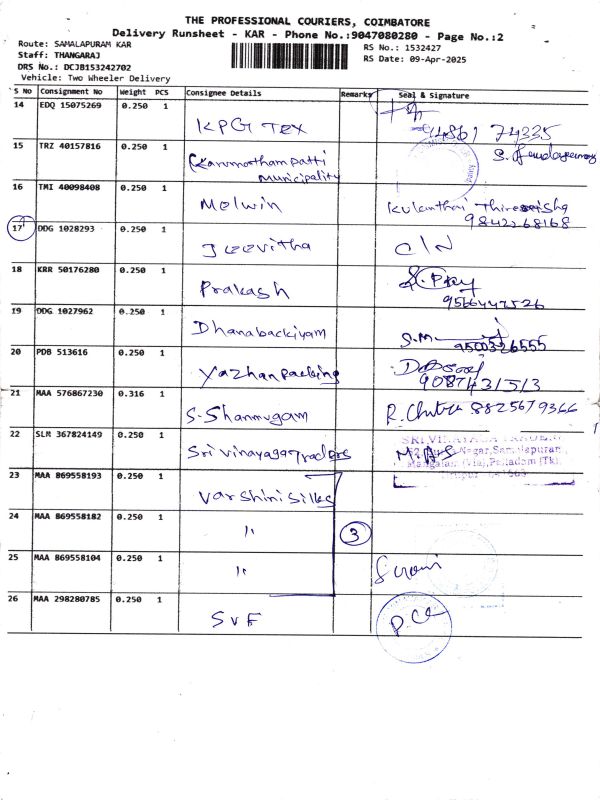 THE PROFESSIONAL COURIERS, COIMBATORE
Delivery Runsheet - KAR - Phone No.:9047080280 - Page No.:2
Route: SAMALAPURAM KAR
RS No.: 1532427
Staff: THANGARAJ
RS Date: 09-Apr-2025
DRS No.: DCJB153242702
Vehicle: Two Wheeler Delivery
S No Consignment No Weight PCS Consignee Details Remarks Seal & Signature
14 EDQ 15075269 0.250 1 KPG Tex 74335
15 TRZ 40157816 0.250 1 (Karumathampatti
Municipality
16 TMI 40098408 0.250 1 Melwin Kulanthai
9842268168
17 DDG 1028293 0.250 1 Jeevitha C/N
18 KRR 50176280 0.250 1 Prakash
9566447526
19 DDG 1027962 0.250 1 Dhanabackiyam S.M
9500326555
20 PDB 513616 0.250 1 Yazhan packing
9087431513
21 MAA 576867230 0.316 1 S. Shanmugam R. Chitra 8825679366
22 SLM 367824149 0.250 1 Sri Vinayaga Traders M.A.S
23 MAA 869558193 0.250 1 Varshini silks
24 MAA 869558182 0.250 1 " 3
25 MAA 869558104 0.250 1 "
26 MAA 298280785 0.250 1 SVF